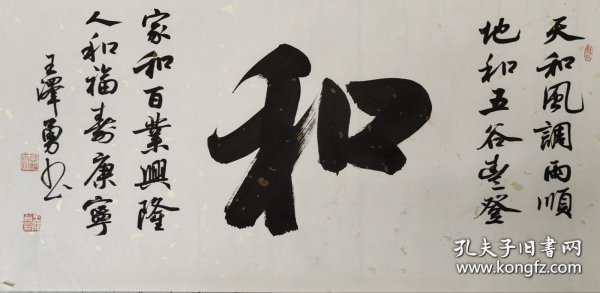 天和風調雨順
地和五谷豊登
和
家和百業興隆
人和福壽康寧
王澤勇书
孔夫子旧書网
www.kongfz.com